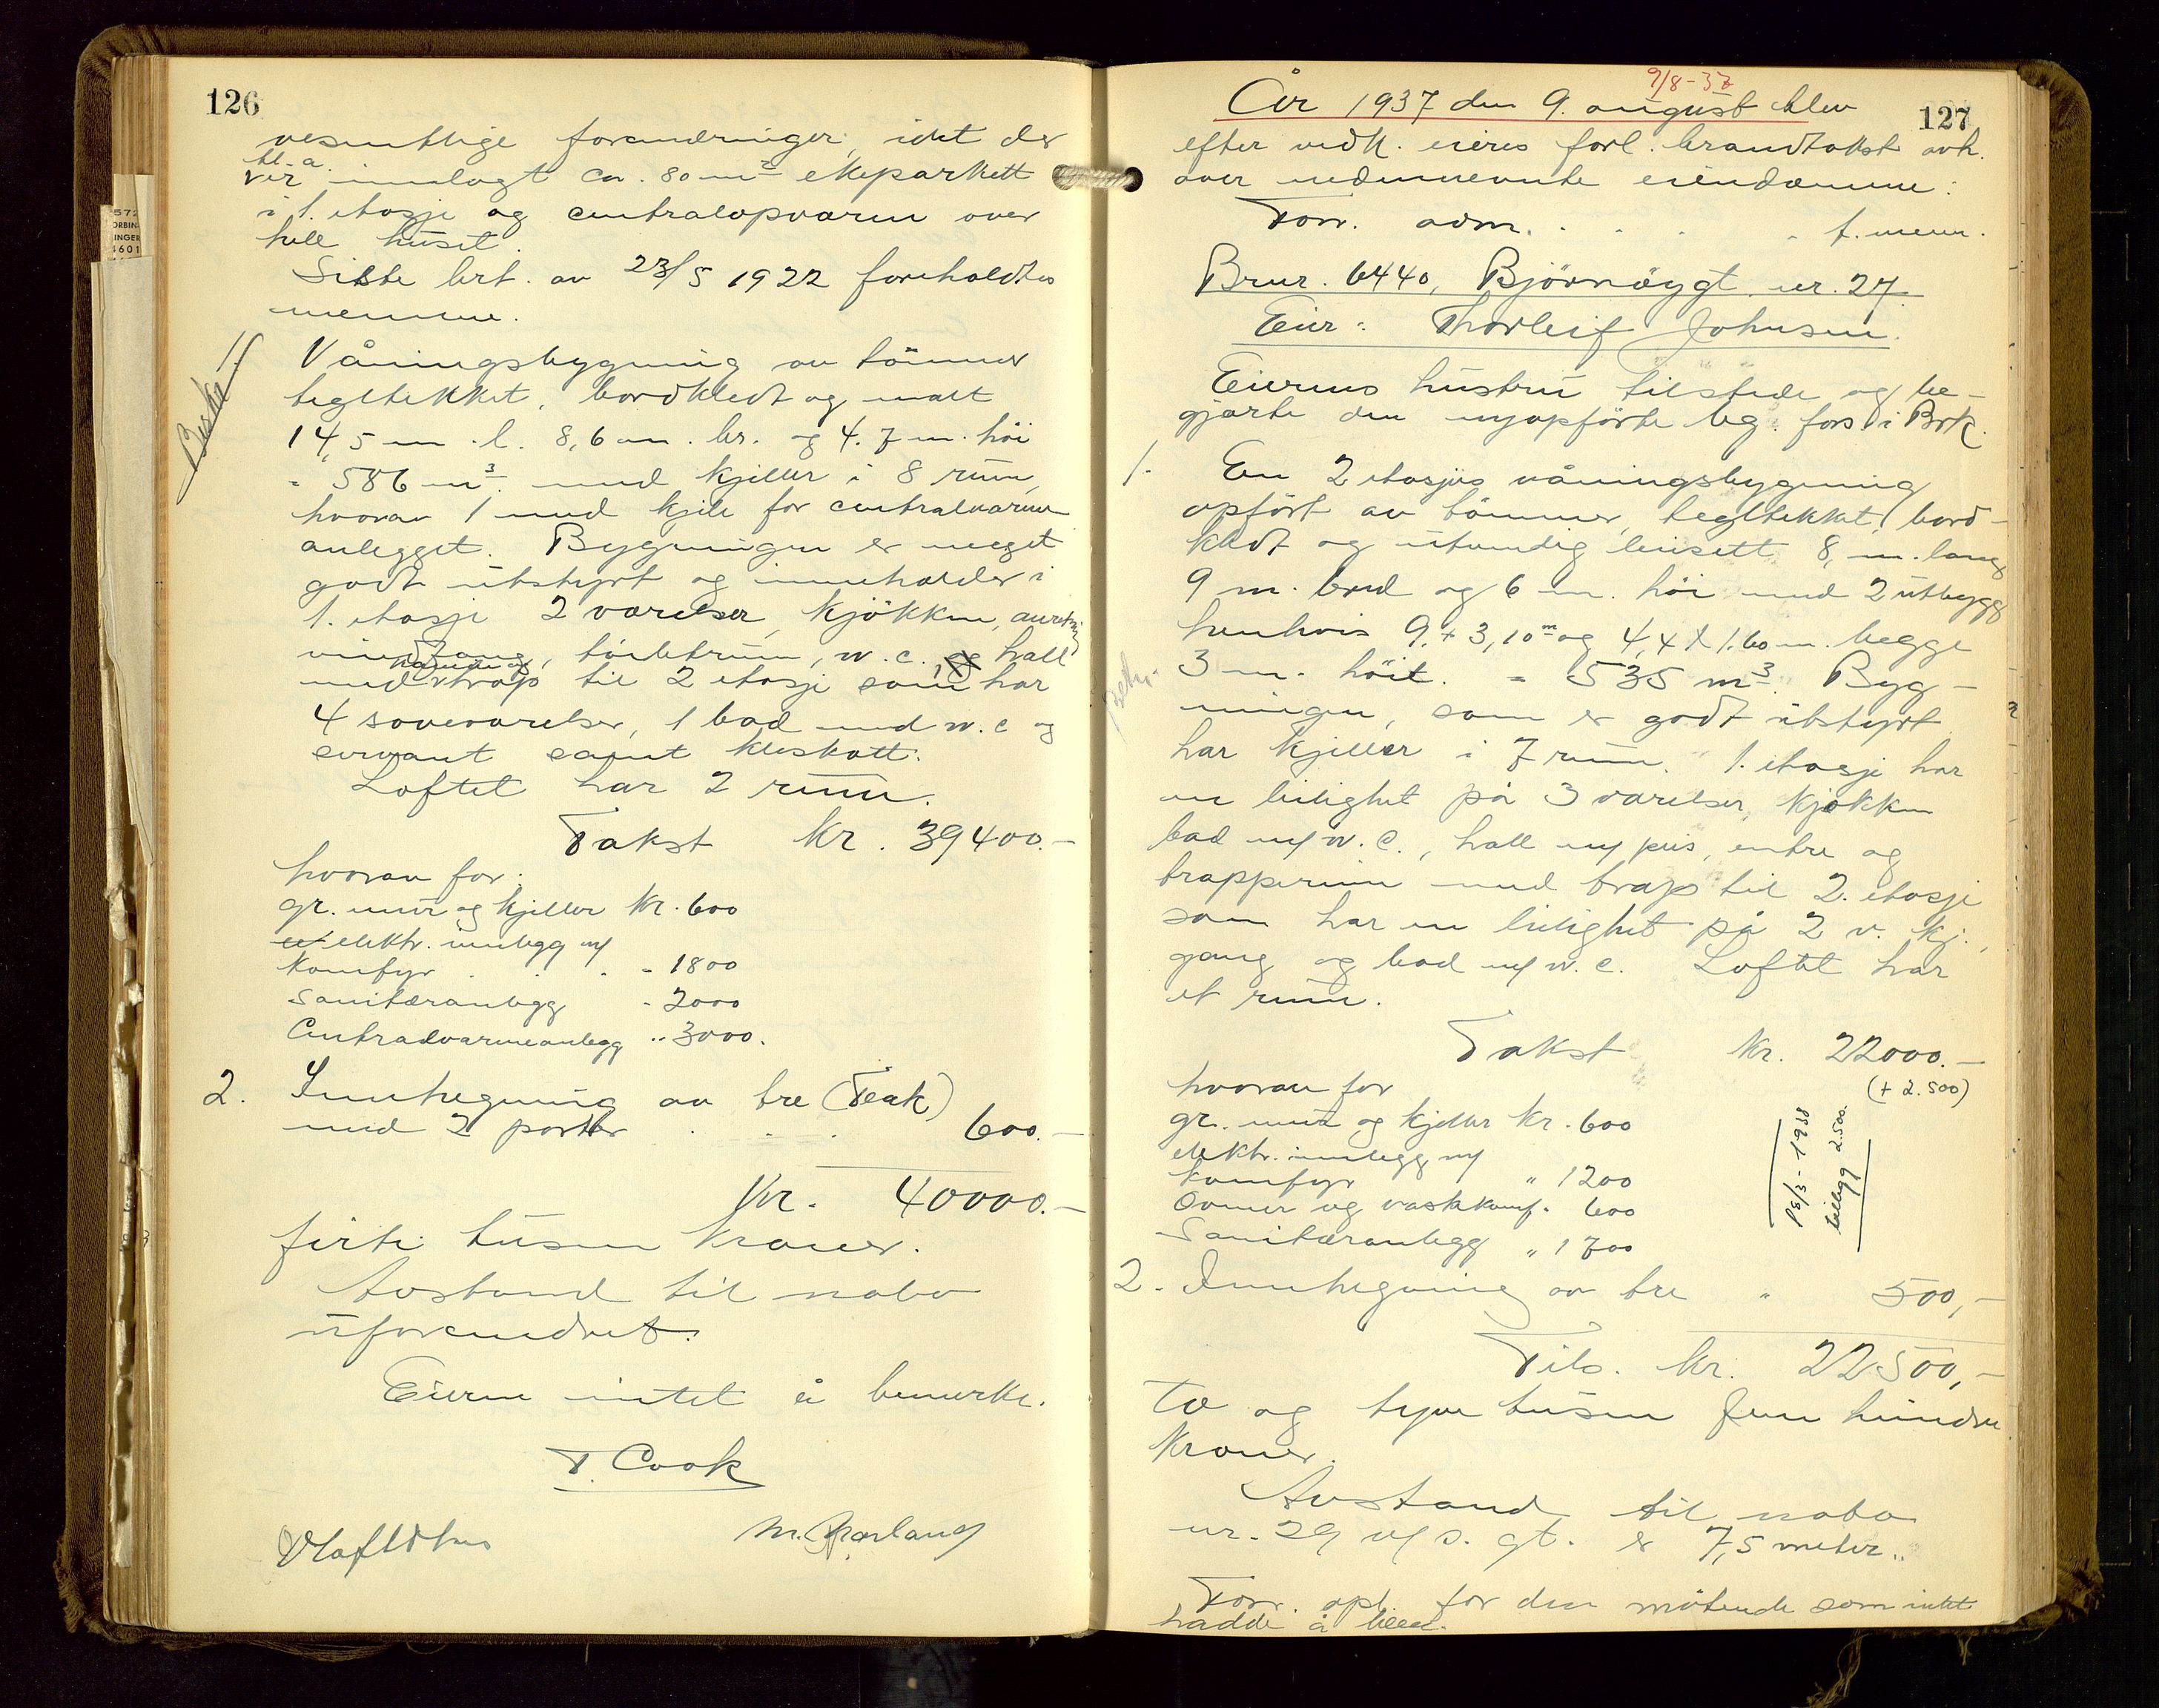 126
vesentlige forandringer, idet der
bl. a.
er innlagt ca. 80 m² ekeparkett
i 1. etasje og centralopvarm over
hele huset.
Siste brt. av 23/5 1922 foreholdtes
mennene.
1/ Våningsbygning av tømmer
tegltekket, bordkledt og malt
14,5 m. l. 8,6 m. br. og 4.7 m. höi
= 586 m³. med kjeller i 8 rum,
hvorav 1 med kjele for centralvarme
anlegget. Bygningen er meget
godt utstyrt og inneholder i
1. etasje 2 værelser, kjökken, anretning
vindfang, toiletrum, w.c., hall
med trap til 2 etasje som har
4 soveværelser, 1 bad med w.c og
servant samt kleskott.
Loftet har 2 rum.
Takst Kr. 39400.-
hvorav for:
gr. mur og kjeller Kr. 600
elektr. innlegg m/
Komfyr . . . - 1800
Sanitæranlegg - 2000
Centralvarmeanlegg " 3000.
2. Innhegning av tre (Teak)
med 2 porter . . . 600.-
Kr. 40000.-
firti tusen kroner.
Avstand til nabo
uforandret.
Eieren intet å bemerke.
T. Cook
Olaf Idthus
M. Sparland
572
ORBIN
INGER
4601
9/8-37
127
År 1937 den 9. august blev
efter vedk. eieres forl. brandtakst avh.
over nedennevnte eiendomme:
Forr. adm. . . . . f. menn.
Brnr. 6440, Björnöygt. nr. 27.
Eier: Thorleif Johnsen.
Eierens hustru tilstede og be-
gjærte den nyopförte byg. fors. i Brk.
1. En 2 etasjes våningsbygning
opfört av tömmer, tegltekket, bord-
kledt og utvendig beisett 8, m. lang
9 m. bred og 6 m. höi med 2 utbygg
henhvis 9. + 3,10 m og 4,4 x 1.60 m. begge
3 m. höit. = 535 m³. Byg-
ningen, som er godt utstyrt
har kjeller i 7 rum. 1. etasje har
en leilighet på 3 værelser, kjøkken
bad m/ w.c., hall m/ peis, entre og
trapperum med trap til 2. etasje
som har en leilighet på 2 v. kj.,
gang og bad m/ w.c. Loftet har
et rum.
Takst Kr. 22000.-
(+ 2.500)
hvorav for
gr. mur og kjeller Kr. 600
elektr. innlegg m/
komfyr " 1200
Ovner og vaskekomf. 600
Sanitæranlegg " 1700
18/3-1938
tillegg 2.500.
2. Innhegning av tre " 500,-
Tils. kr. 22500,-
To og tyve tusen fem hundre
Kroner.
Avstand til nabo
nr. 29 v/ s. gt. er 7,5 meter.
Forr. opl. for den mötende som intet
hadde å bem.